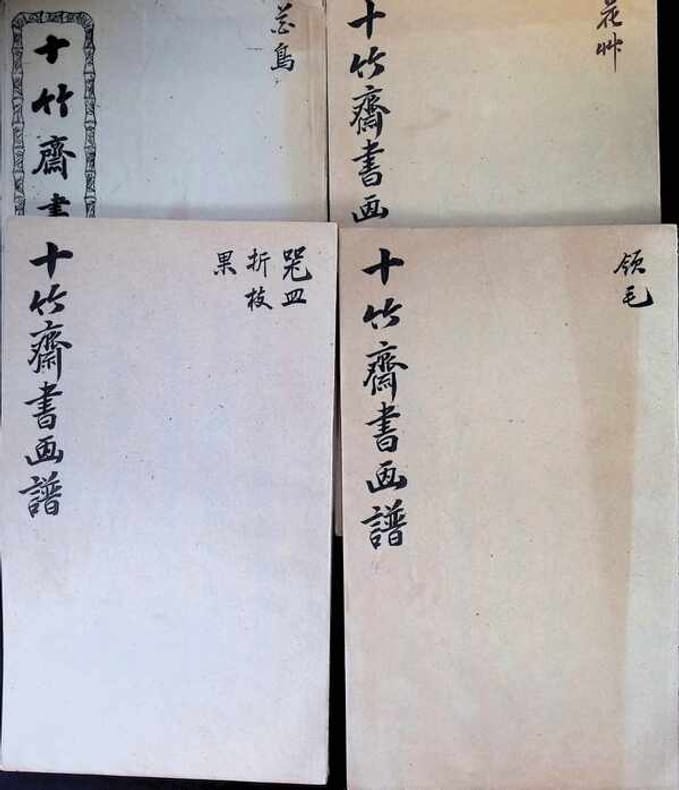 花鳥
十竹齋書
花艸
十竹齋書画
器皿
折枝
果
十竹齋書画譜
翎毛
十竹齋書画譜